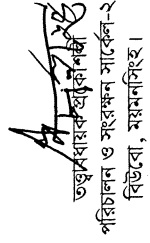 তত্ত্বাবধায়ক প্রকৌশলী
পরিচালন ও সংরক্ষন সার্কেল-২
বিউবো, ময়মনসিংহ।